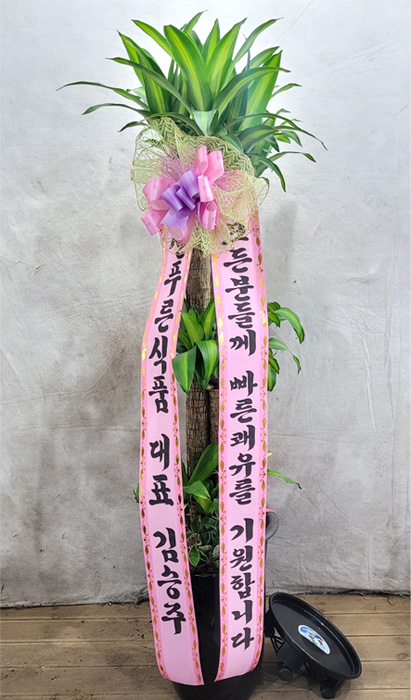 푸른식품 대표 김승주
든분들께 빠른쾌유를 기원합니다